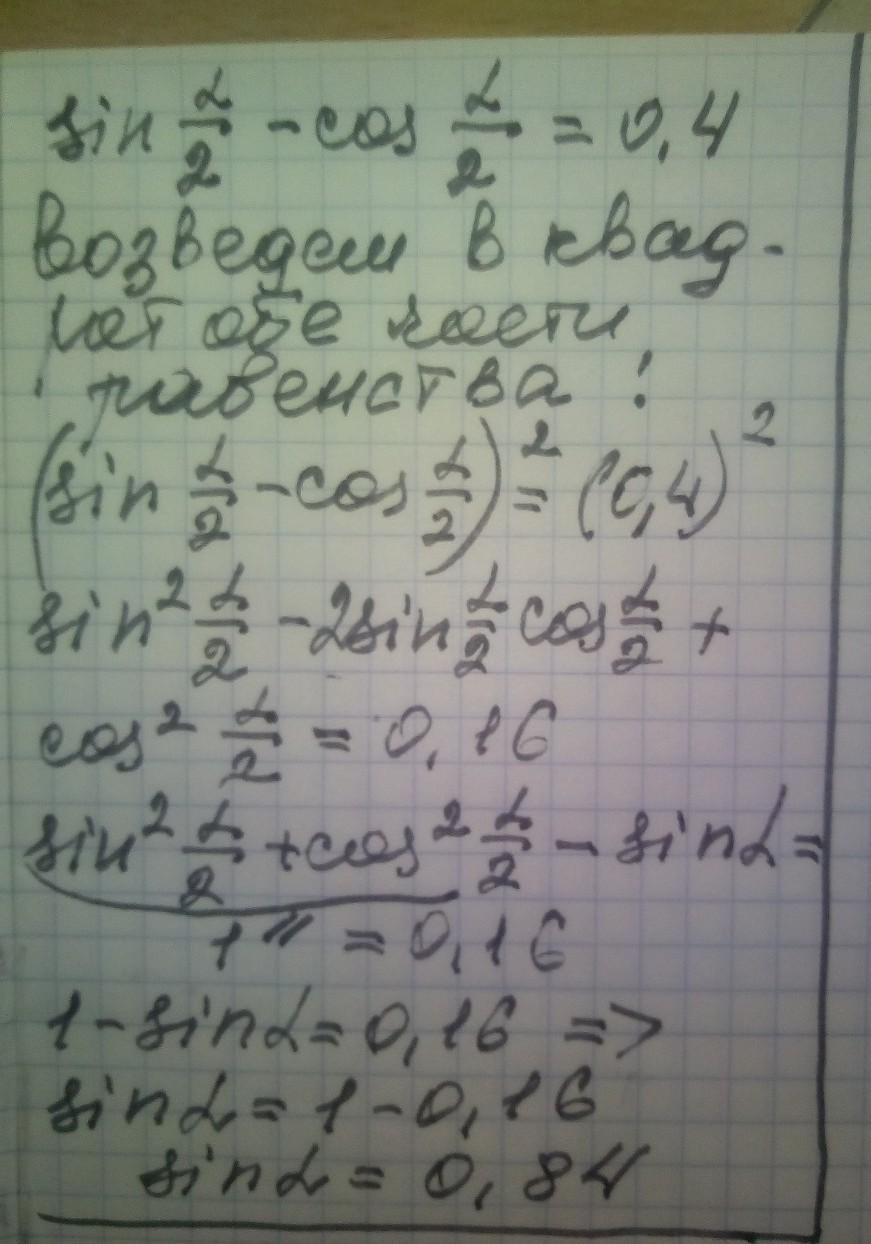 sin α/2 - cos α/2 = 0,4
возведем в квад-
рат обе части
равенства :
(sin α/2 - cos α/2)² = (0,4)²
sin² α/2 - 2sin α/2 cos α/2 +
cos² α/2 = 0,16
sin² α/2 + cos² α/2 - sin α =
1 = 0,16
1 - sin α = 0,16 =>
sin α = 1 - 0,16
sin α = 0,84